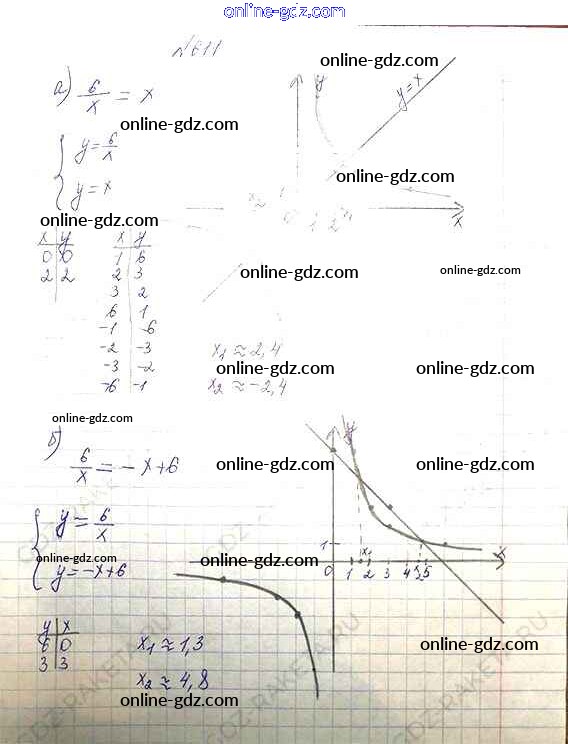 online-gdz.com
N611
online-gdz.com
а) 6/x = x
y
y=x
online-gdz.com
{ y = 6/x
y = x
online-gdz.com
x₂
1 2 x₁
x
online-gdz.com
x y
0 0
2 2
x y
1 6
2 3
3 2
6 1
-1 -6
-2 -3
-3 -2
-6 -1
online-gdz.com
online-gdz.com
x₁ ≈ 2,4
online-gdz.com
online-gdz.com
x₂ ≈ -2,4
online-gdz.com
б) 6/x = -x+6
y
online-gdz.com
online-gdz.com
{ y = 6/x
y = -x+6
online-gdz.com
online-gdz.com
1
x
0 1 x₁ 2 3 4 x₂ 5
y x
6 0
3 3
x₁ ≈ 1,3
online-gdz.com
x₂ ≈ 4,8
online-gdz.com
GDZ-RAKETA.RU
GDZ-RAKETA.RU